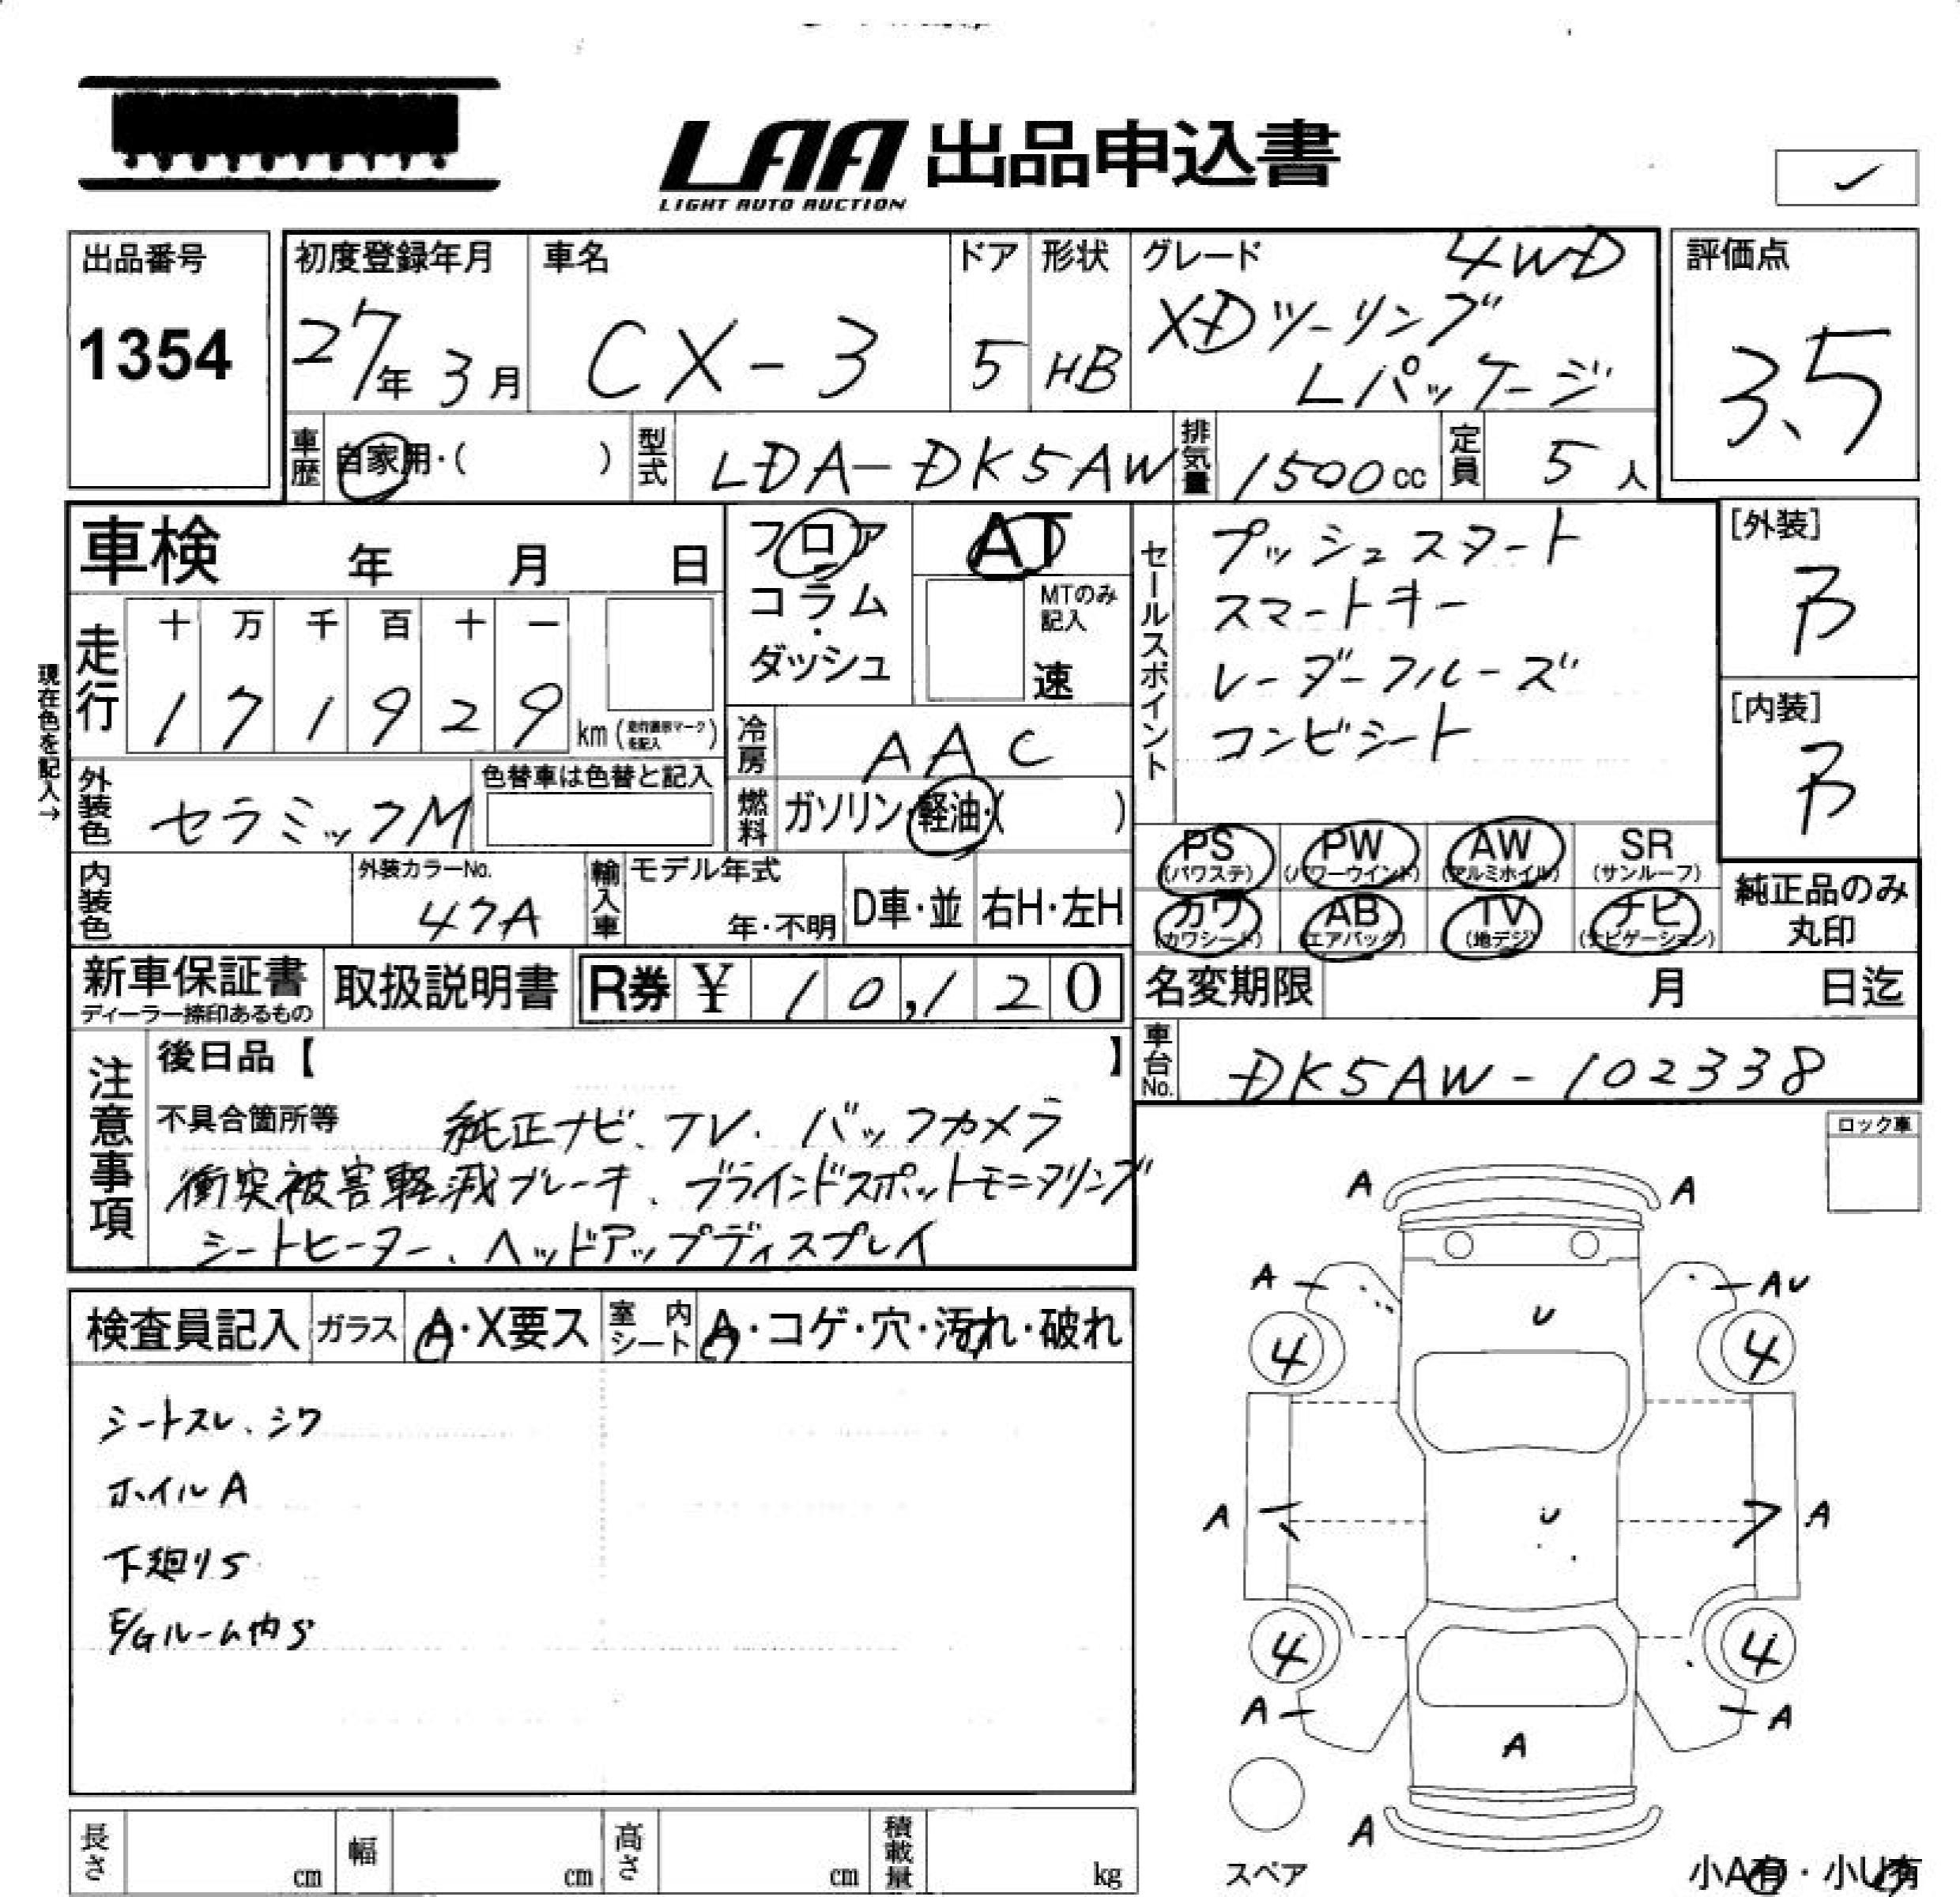 LAA 出品申込書
LIGHT AUTO AUCTION
出品番号
1354
初度登録年月
27年 3月
車名
CX-3
ドア
5
形状
HB
グレード 4WD
XDツーリング
Lパッケージ
評価点
3.5
車歴 自家用・( )
型式 LDA-DK5AW
排気量 1500cc
定員 5人
車検 年 月 日
フロア
コラム
・
ダッシュ
AT
MTのみ
記入
速
セールスポイント
プッシュスタート
スマートキー
レーダークルーズ
コンビシート
[外装]
B
[内装]
B
現在色を記入→
走行
十 万 千 百 十 一
1 7 1 9 2 9
km
冷房 AAC
燃料 ガソリン・軽油・( )
外装色 セラミックM
色替車は色替と記入
内装色
外装カラーNo.
47A
輸入車
モデル年式
年・不明
D車・並 右H・左H
PS (パワステ)
PW (パワーウインド)
AW (アルミホイル)
SR (サンルーフ)
カワ (カワシート)
AB (エアバック)
TV (地デジ)
ナビ (ナビゲーション)
純正品のみ
丸印
新車保証書
ディーラー捺印あるもの
取扱説明書
R券 ¥ 10,120
名変期限 月 日迄
車台No. DK5AW-102338
注意事項
後日品【 】
不具合箇所等 純正ナビ、TV、バックカメラ
衝突被害軽減ブレーキ、ブラインドスポットモニタリング
シートヒーター、ヘッドアップディスプレイ
ロック車
検査員記入 ガラス A・X要ス 室内シート A・コゲ・穴・汚れ・破れ
シートスレ、シワ
ホイルA
下廻りS
E/Gルーム内S
A A
A AU
U
4 4
A U A
4 4
A A
A
A
スペア
小A有・小U有
長さ cm 幅 cm 高さ cm 積載量 kg